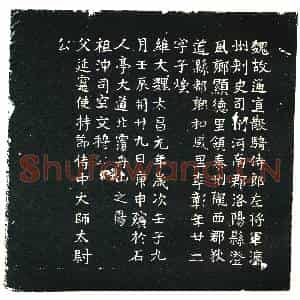 魏故通直散騎侍郎左將軍瀛
州刺史司州河南郡洛陽縣澄
風鄉顯德里領隴西郡狄
道縣都鄉和風里李彰年廿二
字子煥
維大魏太昌元年歲次壬子九
月壬辰朔廿九日庚申殯於石
人亭大道北之陽
祖沖司空文穆公
父延寔使持節侍中大師太尉
公
Shufawang.CN